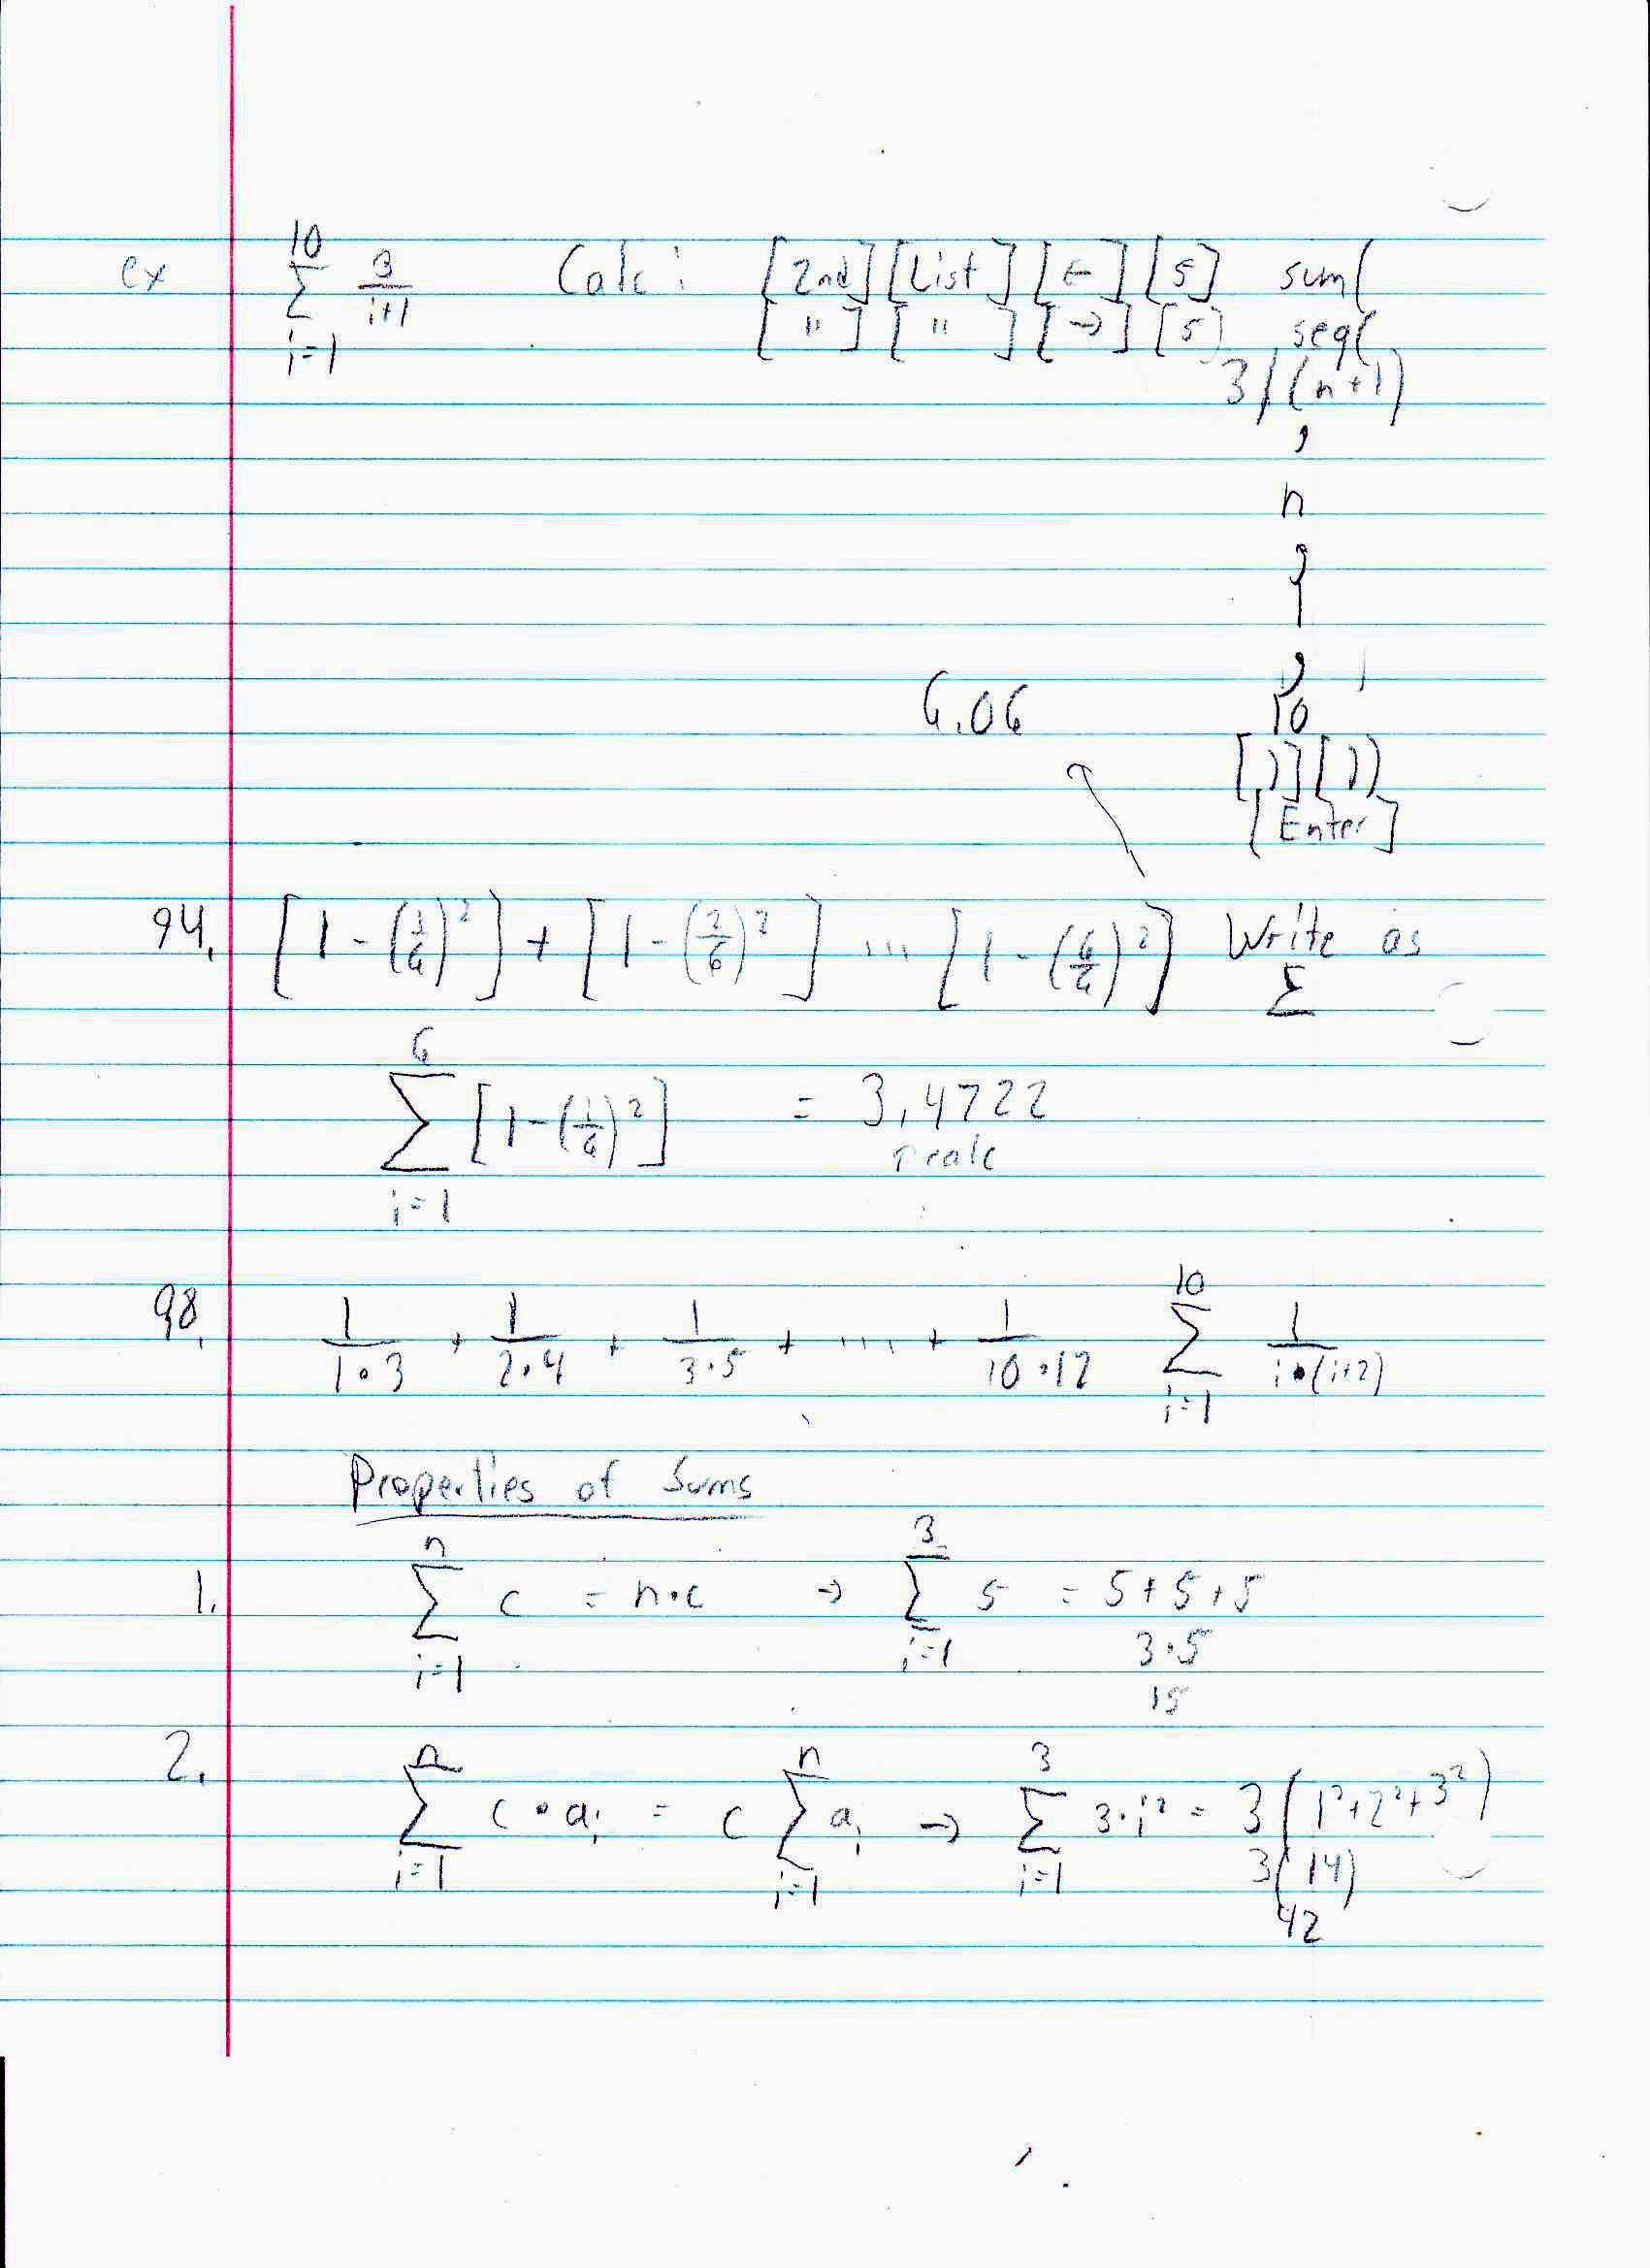 ex ∑_{i=1}^{10} 3/(i+1) Calc: [2nd] [List] [←] [5] sum(
[ " ] [ " ] [→] [5] seq(
3/(n+1)
,
n
,
1
,
10
6.06
[)] [)]
[Enter]
94. [1-(1/6)²] + [1-(2/6)²] ... [1-(6/6)²] Write as
∑
∑_{i=1}^{6} [1-(i/6)²] = 3.4722
↑ calc
98. 1/(1•3) + 1/(2•4) + 1/(3•5) + .... + 1/(10•12) ∑_{i=1}^{10} 1/(i•(i+2))
Properties of Sums
1. ∑_{i=1}^{n} c = n•c → ∑_{i=1}^{3} 5 = 5+5+5
3•5
15
2. ∑_{i=1}^{n} c•a_i = c ∑_{i=1}^{n} a_i → ∑_{i=1}^{3} 3•i² = 3(1²+2²+3²)
3(14)
42